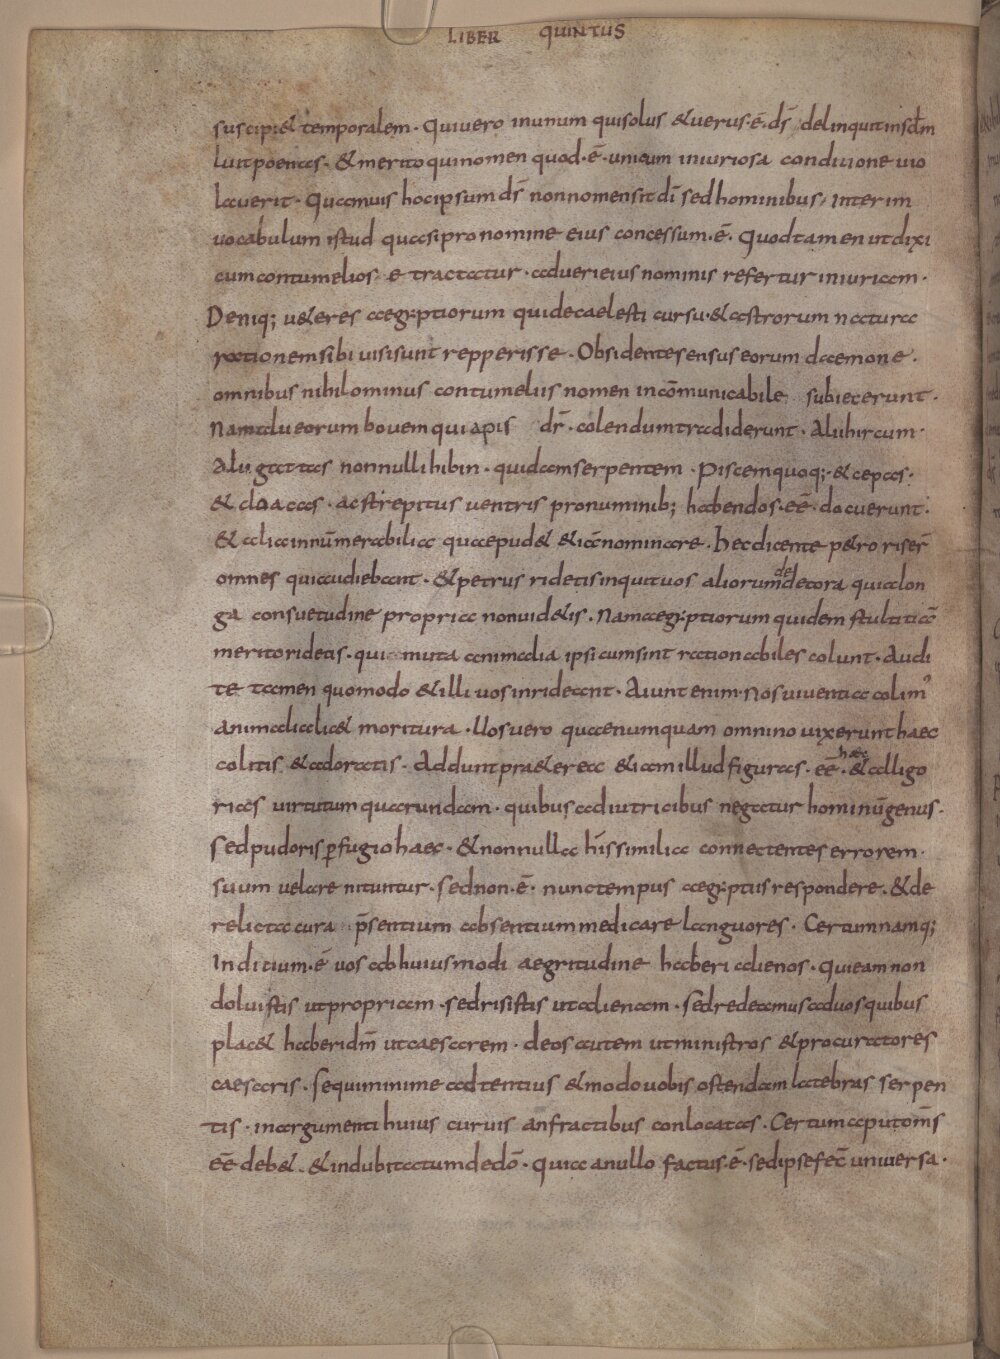 LIBER QUINTUS
suscipi& temporalem. Quivero inunum quisolus &uerus.ē. dś delinquit insclm
luit poenas. & merito quinomen quod.ē. unicum iniuriosa condicione uio
lauerit. Quamuis hocipsum dś nonnomensit dī sed hominibus, interim
uocabulum istud quasi pro nomine eius concessum.ē. Quodtamen ut dixi
cumcontumeliose tractatur. aduerieius nominis refertur iniuriam.
Deniq; u&eres aegyptiorum qui decaelesti cursu.& astrorum natura
rationem sibi uisisunt repperisse. Obsidentesensus eorum daemone.
omnibus nihilominus contumeliis nomen incōmunicabile subiecerunt.
Namalii eorum bouem qui apis dr̄. colendum tradiderunt. Alii hircum.
Alii gattas nonnulli hibin. quidam serpentem. Piscem quoq; & cepas.
& cloacas. ac strepitus uentris pro numinib; habendos.eē. docuerunt.
& alia innūmerabilia quae pud& &iā nominare. hec dicente p&ro riser̄
omnes qui audiebant. &petrus ridetis inquit uos aliorum dedecora quia lon
ga consuetudine propria nonuid&is. Nam aegyptiorum quidem stultitiā
merito ridetis. qui muta animalia ipsi cum sint rationabiles colunt. Audi
te tamen quomodo &illi uos inrideant. Aiunt enim. Nos uiuentia colim'
animalia lic& moritura. Uos uero quae numquam omnino uixerunt haec
colitis &adoratis. Addunt pra&erea &iam illud figuras.eē. haec &alligo
rias uirtutum quarundam. quibus adiutricibus negatur hominū genus.
sed pudoris pfugio haec. & nonnulla hís similia connectentes errorem.
suum uelare nituntur. sed non.ē. nunc tempus aegyptiis respondere. &de
relicta cura p̄sentium absentium medicare languores. Certum namq;
Indicium.ē uos ab huiusmodi aegritudine haberi alienos. quieam non
doluistis ut propriam. sed risistis ut alienam. sed redeamus aduos quibus
plac& haberi dm̄ ut caesarem. deos autem ut ministros & procuratores
caesaris. sequimini me adtentius & modo uobis ostendam latebras serpen
tis. in argumenti huius curuis anfractibus conlocatas. Certum aput om̄s
eē deb&. & indubitatum de dō. quia anullo factus.ē. sed ipse fec̄ uniuersa.